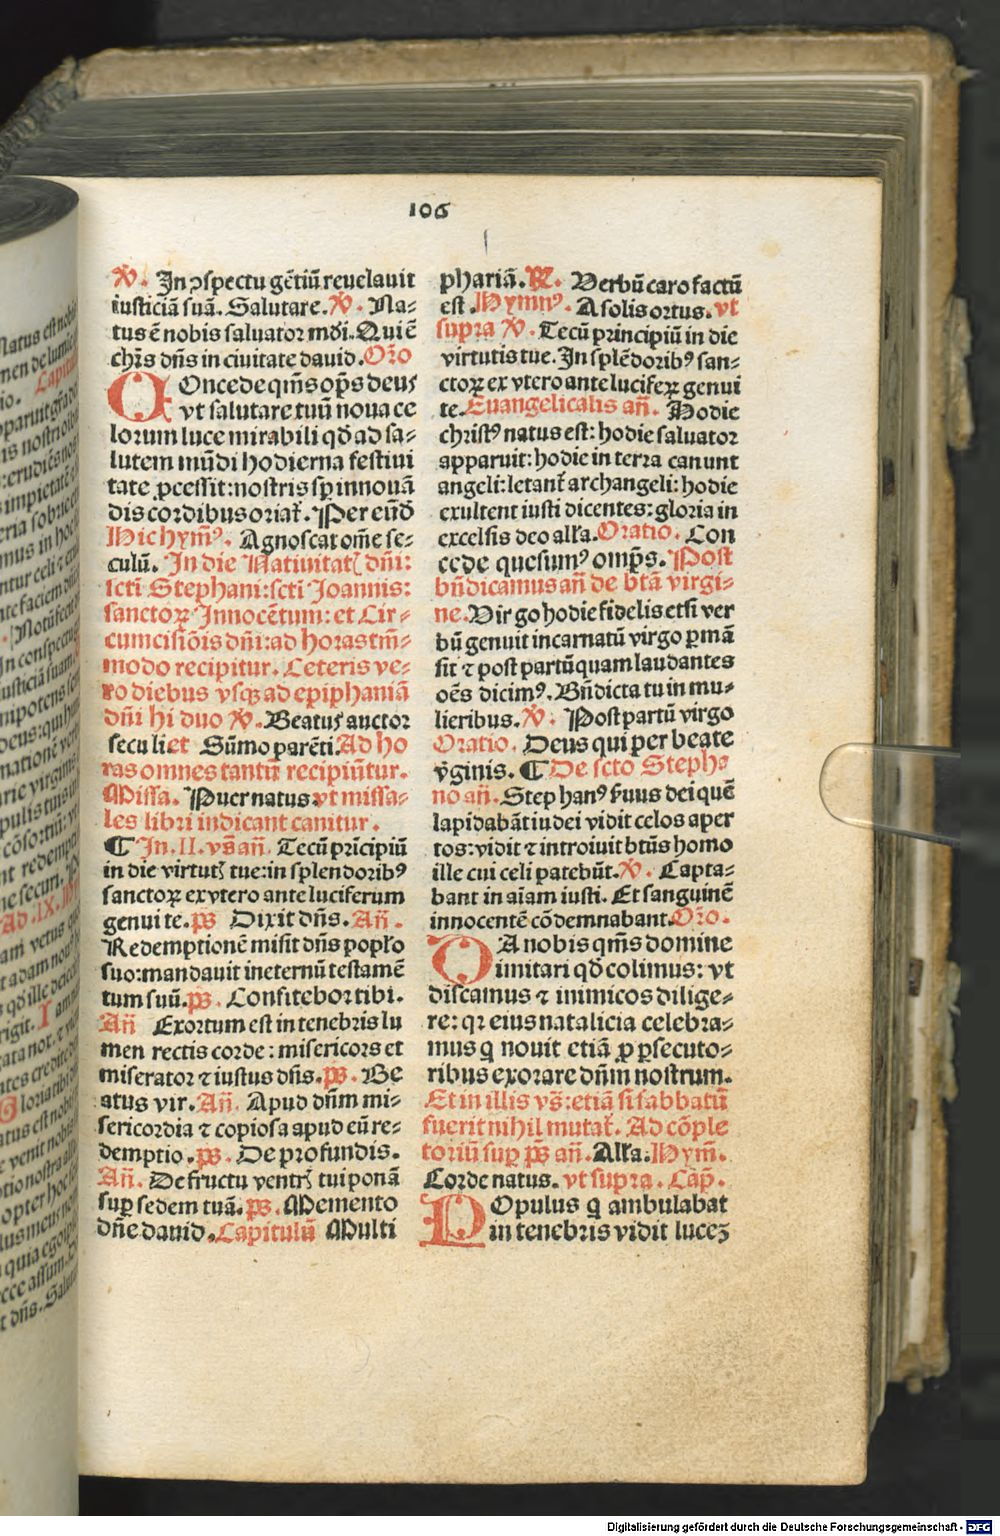 106
℣. In ꝯspectu gẽtiũ reuelauit
iusticiã suã. Salutare. ℣. Na⸗
tus ẽ nobis saluator mdi. Qui ẽ
chrs dñs in ciuitate dauid. Oro
COncede qms ops deus
vt salutare tuũ noua ce
lorum luce mirabili qd ad sa⸗
lutem mũdi hodierna festiui
tate ꝓcessit: nostris sp innouã
dis cordibus oriat. Per eũd
Hic hymꝰ. Agnoscat ome se⸗
culũ. In die Natiuitat dñi:
scti Stephani: scti Joannis:
sanctoꝝ Innocẽtum: et Cir⸗
cumcisiõis dñi: ad horas tm̃⸗
modo recipitur. Ceteris ve⸗
ro diebus vsqꝫ ad epiphaniã
dñi hi duo ℣. Beatus auctor
seculi et Sũmo parẽti. Ad ho
ras omnes tantũ recipiũtur.
Missa. Puer natus. vt missa⸗
les libri indicant canitur.
¶ In. II. vs añ. Tecũ prīcipiũ
in die virtut tue: in splendoribꝰ
sanctoꝝ ex vtero ante luciferum
genui te. ps Dixit dñs. Añ.
Redemptionẽ misit dñs poplo
suo: mandauit in eternũ testamẽ
tum suũ. ps. Confitebor tibi.
Añ Exortum est in tenebris lu
men rectis corde: misericors et
miserator ⁊ iustus dñs. ps. Be
atus vir. Añ. Apud dñm mi⸗
sericordia ⁊ copiosa apud eũ re⸗
demptio. ps. De profundis.
Añ. De fructu ventr tui ponã
sup sedem tuã. ps. Memento
dñe dauid. Capitulũ Multi
phariã. ℟. Verbũ caro factũ
est. Hymnꝰ. A solis ortus. vt
supra ℣. Tecũ principiũ in die
virtutis tue. In splẽdoribꝰ san⸗
ctoꝝ ex vtero ante luciferꝝ genui
te. Euangelicalis añ. Hodie
christꝰ natus est: hodie saluator
apparuit: hodie in terra canunt
angeli: letant archangeli: hodie
exultent iusti dicentes: gloria in
excelsis deo alla. Oratio. Con
cede quesumꝰ omps. Post
bñdicamus añ de btã virgi⸗
ne. Virgo hodie fidelis etsi ver
bũ genuit incarnatũ virgo pmã
sit ⁊ post partũ quam laudantes
oẽs dicimꝰ. Bñdicta tu in mu⸗
lieribus. ℣. Post partũ virgo
Oratio. Deus qui per beate
vginis. ¶ De scto Stepha
no añ. Stephanꝰ ſuus dei quẽ
lapidabãt iudei vidit celos aper
tos: vidit ⁊ introiuit btũs homo
ille cui celi patebũt. ℣. Capta⸗
bant in aiam iusti. Et sanguinẽ
innocentẽ cõdemnabant. Oro.
DA nobis qms domine
imitari qd colimus: vt
discamus ⁊ inimicos dilige⸗
re: qr eius natalicia celebra⸗
mus q nouit etiã ꝓ psecuto⸗
ribus exorare dñm nostrum.
Et in illis vs: etiã si sabbatũ
fuerit nihil mutat. Ad cõple
toriũ sup ps añ. Alla. Hym.
Corde natus. vt supra. Cap.
POpulus q ambulabat
in tenebris vidit luceꝫ
Digitalisierung gefördert durch die Deutsche Forschungsgemeinschaft - DFG